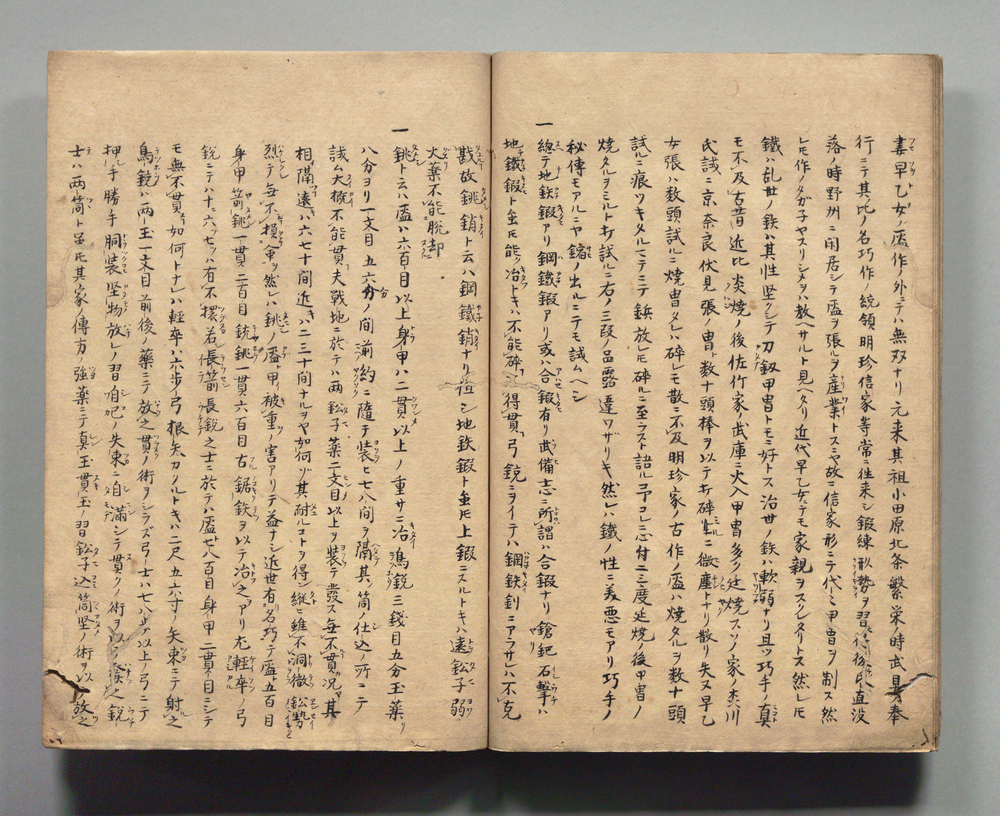 妻早乙女ノ盔作ノ外ニテハ無双ナリ元来其祖小田原北条繁栄ノ時武具奉
行ニテ其比ノ名巧作ノ統領明珍信家等常ニ往来シ鍛練形勢ヲ習 氏直没
落ノ時野州ニ閑居シテ盔ヲ張ルヲ産業トス故ニ信家ノ形ニテ代々甲冑ヲ制ス然
レモ作ノタガ子ヤスリシメヲハ教ヘサルト見ヘタリ近代早乙女ニテモ家親ヲスクレタリトス然レモ
鐵ハ乱世ノ鉄ハ其性堅クシテ刀釼甲冑トモニ好トス治世ノ鉄ハ軟弱ナリ且ツ巧手ノ真
モ不及古昔近比炎焼ノ後佐竹家武庫ニ火入甲冑多ク延焼スソノ家 川
氏試ニ京奈良伏見張ノ冑ト数十頭棒ヲ以テ打碎ニ微塵トナリ散リ失又早乙
女張ハ数頭試ルニ焼冑タレハ碎レモ散ニ不及明珍家ノ古作ノ盔ハ焼タルヲ数十頭
試ルニ痕ツキタルマテニテ鋲放レモ碎ルニ至ラスト語ル予コレニ志付二三度延焼ノ後甲冑ノ
焼タルヲミルト打試ルニ右ノ三段ノ品露違ワザリキ然レハ鐵ノ性ニ美悪モアリ巧手ノ
秘傳モアルニヤ鎔ノ出ルニテモ試ムヘシ
一 總テ地鉄鍛アリ鋼鐵鍛アリ或ハ合鍛有リ武備志ニ所謂ハ合鍛ナリ鎗鈀石擊ハ
地鐵鍛ト 能ク冶トキハ不能碎 得貫弓銃ニヲイテハ鋼鉄釗ニアラサレハ不克
戡故銚銷ト云ハ鋼鐵銷ナリ蓋シ地鉄鍛ト 上鍛ニスルトキハ遠鈆子弱
火薬不能脱却
一 銚ト云ハ盔ハ六百目以上身甲ハ二貫以上ノ重サニ冶鳥銃三錢目五分玉薬
八分ヨリ一文目五六分ノ間 約ニ隨テ装ヒ七八間隔其ノ筒ノ仕込ノ所ニテ
試ム大概不能貫夫戦地ニ於テハ両鈆子薬二文目以上ヲ装テ發ス毎不貫況ヤ其
相隔遠ハ六七十間近ハ二三十間ナルヲヤ如何ゾ其耐ルコトヲ得シ縱ヒ雖不洞徹鈆勢
烈テ毎不損傷ラ然レハ銚ノ盔甲ハ被重ノ害アリテ益ナシ近世有名巧テ盔五百目
身甲箭銚一貫二百目銃銚一貫六百目古鋸鉄ヲ以テ冶之アリ尤軽卒ノ弓
銃ニテハ十ニ六ツ七ツハ有不擐若シ長箭長銃之士ニ於テハ盔七八百目身甲二貫目ニシテ
モ無不貫如何トナレハ軽卒ハ六歩ノ弓根矢カノルトキハ二尺五六寸ノ矢束ニテ射之
鳥銃ハ両玉一文目前後ノ薬ニテ放之貫ノ術ヲシラズ弓士ハ七八歩以上ノ弓ニテ
押シ手勝手胴装堅物放レノ習 矢束ニ自滿シテ貫クノ術ヲ以テ發之銃
士ハ両筒ト 其家ノ傳方ノ強薬ニテ真玉貫玉ノ習鈆子込筒堅ノ術ヲ以 放之